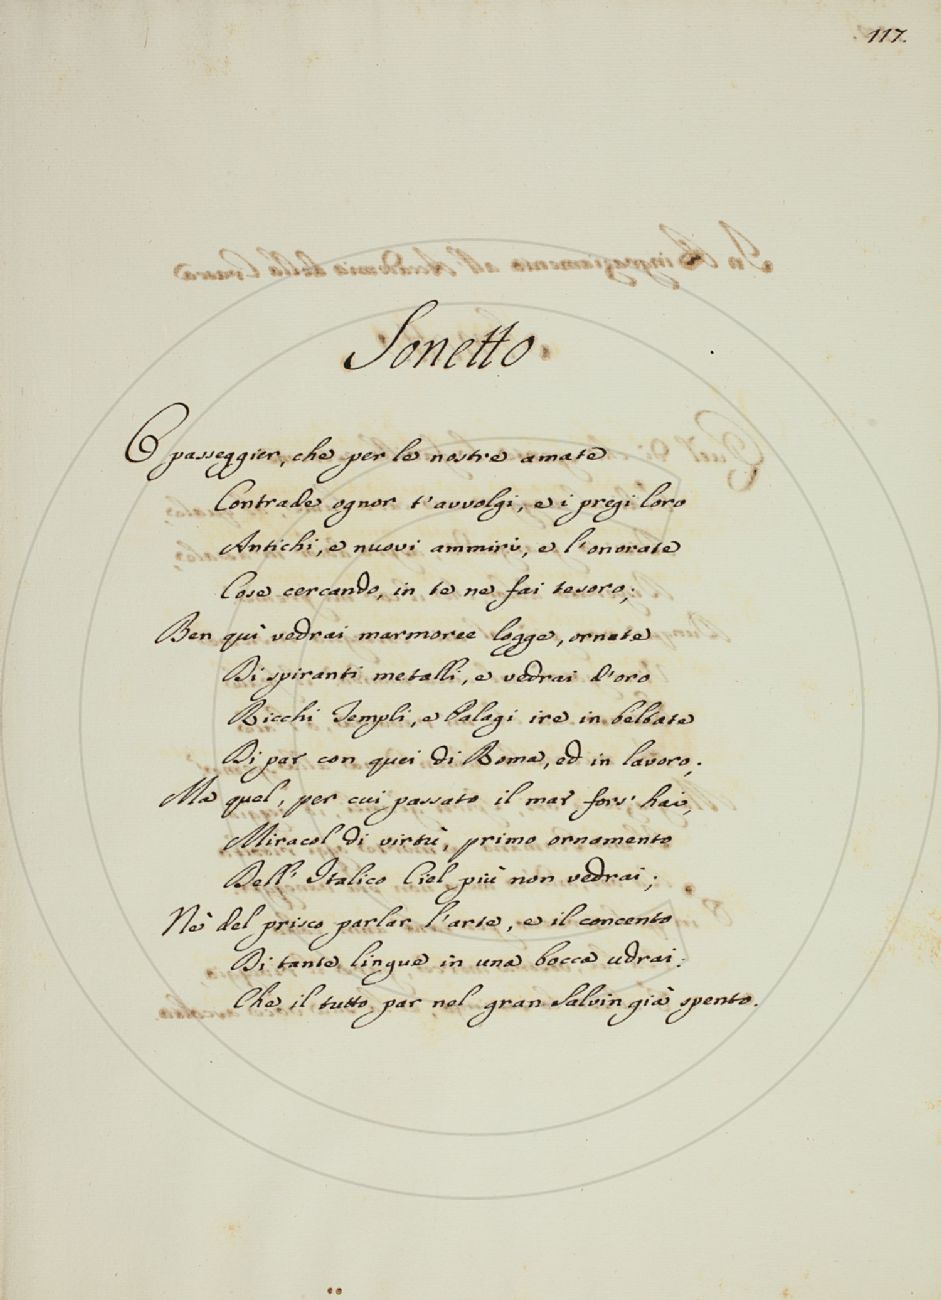 117.
Sonetto
O passeggier, che per le nostre amate
Contrade ognor t'avvolgi, e i pregi loro
Antichi, e nuovi ammiri, e l'onorate
Cose cercando, in te ne fai tesoro;
Ben quì vedrai marmoree logge, ornate
Di spiranti metalli, e vedrai d'oro
Ricchi Templi, e Palagi ire in beltate
Di par con quei di Roma, ed in lavoro;
Ma quel, per cui passato il mar fors' hai,
Miracol di virtù, primo ornamento
Dell' Italico Ciel più non vedrai;
Nè del prisco parlar l'arte, e il concento
Di tante lingue in una bocca udrai:
Che il tutto par nel gran Salvin già spento.